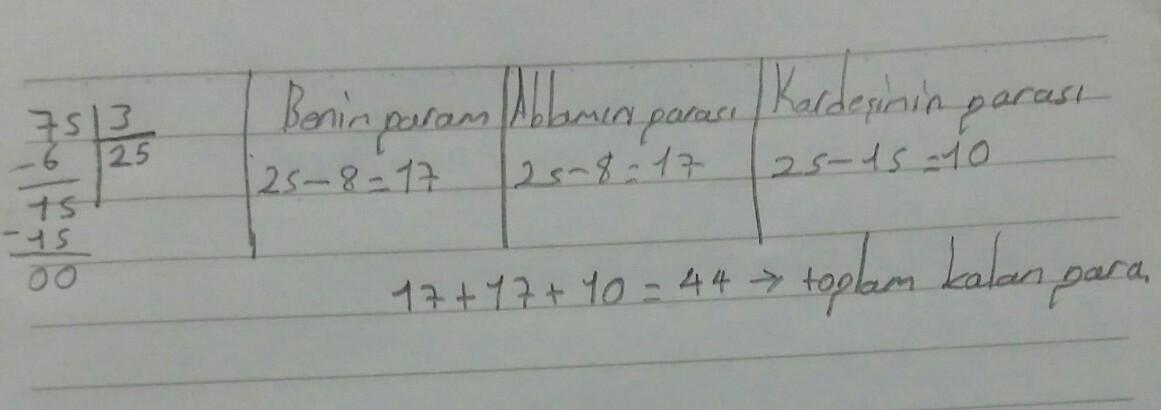 75 | 3
-6 | 25
15
-15
00
Benim param | Ablamın parası | Kardeşinin parası
25-8=17 | 25-8=17 | 25-15=10
17+17+10=44 → toplam kalan para.